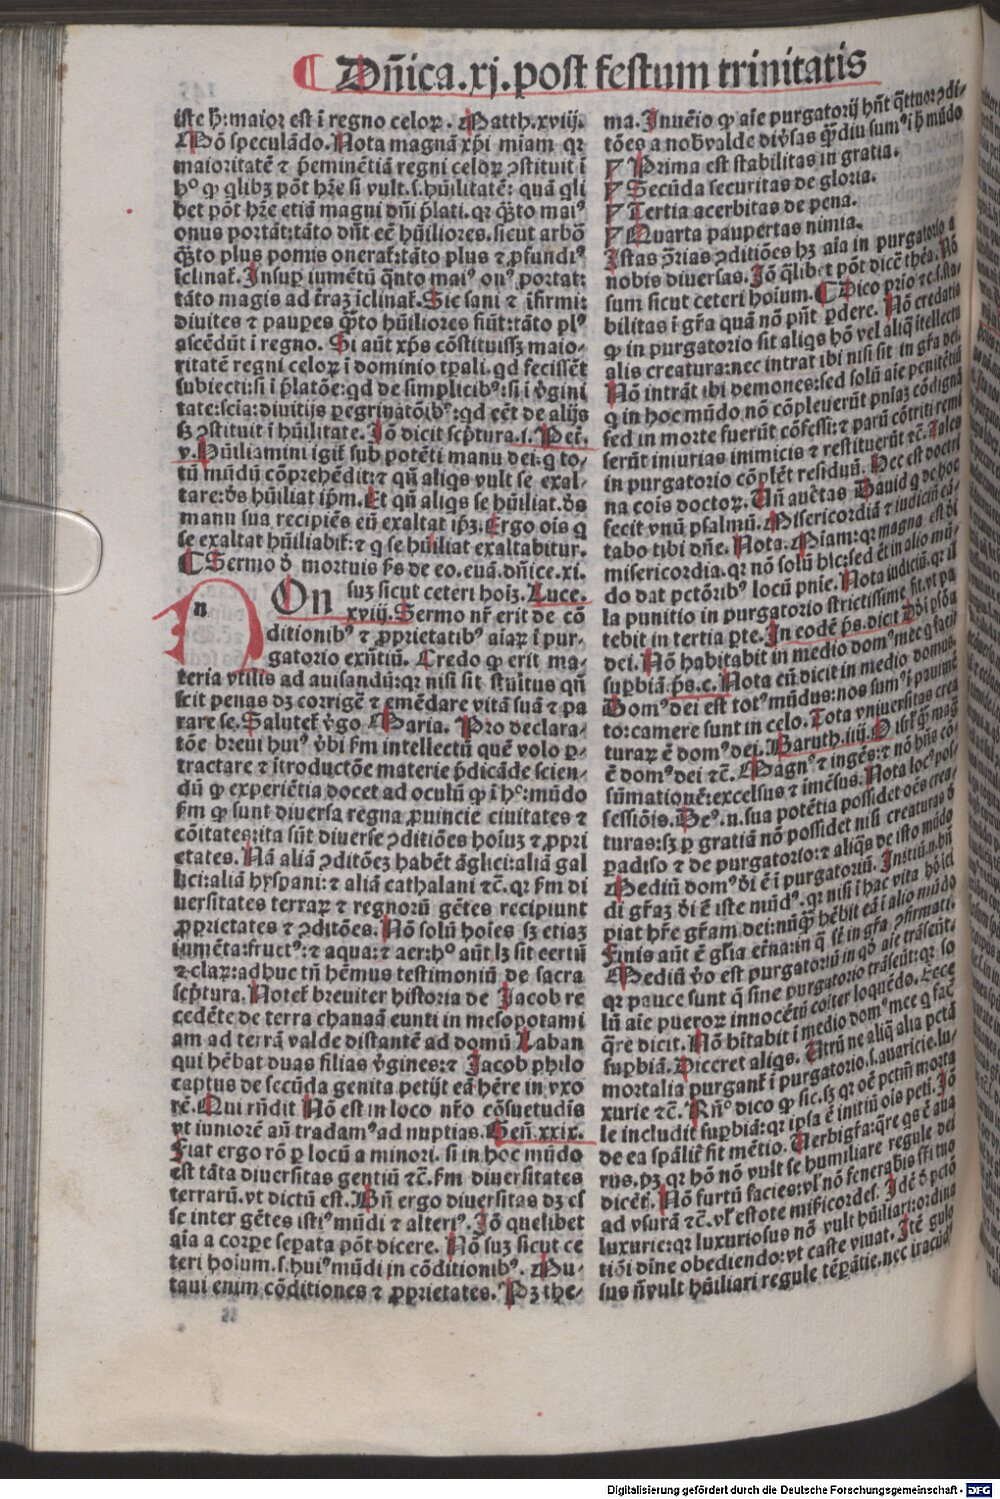 Dñica.xj.post festum trinitatis
iste hic maior est ī regno celoꝝ. Matth.xviij.
Nō speculādo. Nota magnā xp̄i miam qꝛ
maioritatē ⁊ p̄eminētiā regni celoꝝ ꝯstituit ī
hoꝰ ꝙ qlibꝫ pōt hr̄e si vult.s.hūilitatē: quā qli
bet pōt hr̄e etiā magni dn̄i p̄lati.qꝛ q̄ꝫto maiꝰ
onus portāt:tāto dn̄t eē hūiliores.sicut arbō
q̄ꝫto plus pomis onerat̄:tāto plus ⁊ ꝓfundiꝰ
īclinat̄. Insup̱ iumētū q̄nto maiꝰ onꝰ portat:
tāto magis ad t̄raꝫ īclinat̄. Sic sani ⁊ īfirmi:
diuites ⁊ paupes q̄ꝫto hūiliores fiūt:tāto plꝰ
ascēdūt ī regno. Si aūt xp̄s cōstituissꝫ maio-
ritatē regni celoꝝ ī dominio tp̄ali.qd fecissēt
subiecti:si ī p̄latōe:qd de simplicibꝰ:si ī v̄gini
tate:scia:diuitijs peregrinatōibꝰ:qd eēt de alijs
sꝫ ꝯstituit ī hūilitate. Iō dicit scp̄tura.i. Pet̄.
v. Hūiliamini igit̄ sub potēti manu dei:q to-
tū mūdū cōprehēdit:⁊ qn̄ aliqs vult se exal-
tare:ds̄ hūiliat ip̄m. Et qn̄ aliqs se hūiliat.ds̄
manu sua recipiēs eū exaltat ip̄ꝫ. Ergo ois q
se exaltat hūiliabit̄:⁊ q se hūiliat exaltabitur.
Sermo d̄ mortuis p̄s de eo.euā.dñice.xi.
n On suꝫ sicut ceteri hoiꝫ. Luce.
xviij. Sermo nr̄ erit de cō
ditionibꝰ ⁊ ꝓprietatibꝰ aiaꝝ ī pur-
gatorio exn̄tiū. Credo ꝙ erit ma-
teria vtilis ad auisandū:qꝛ nisi sit stultus qn̄
scit penas dꝫ corrigē ⁊ emēdare vitā suā ⁊ pa
rare se. Salutet̄ v̄go Maria. Pro declara-
tōe breui huiꝰ v̄bi fm intellectū quē volo p̱-
tractare ⁊ ītroductōe materie p̄dicāde scien-
dū ꝙ experiētia docet ad oculū ꝙ ī hoꝰ:mūdo
fm ꝙ sunt diuersa regna ꝓuincie ciuitates ⁊
cōitates:ita sūt diuerse ꝯditiōes hoiuꝫ ⁊ ꝓpri
etates. Nā aliā ꝯditōeꝫ habēt āglici:aliā gal
lici:aliā hyspani:⁊ aliā cathalani ⁊c̄.qꝛ fm di
uersitates terraꝝ ⁊ regnorū gētes recipiunt
ꝓprietates ⁊ ꝯditōes. Nō solū hoīes sꝫ etiaꝫ
iumēta:fructꝰ:⁊ aqua:⁊ aer:hoꝰ aūt lꝫ sit certū
⁊ claꝝ:adhuc tn̄ hēmus testimoniū de sacra
scp̄tura. Notet̄ breuiter historia de Jacob re
cedēte de terra chanaā eunti in mesopotami
am ad terrā valde distantē ad domū Laban
qui hēbat duas filias v̄gines:⁊ Jacob philo
captus de secūda genita petijt eā hēre in vxo
rē. Qui rn̄dit Nō est in loco nr̄o cōsuetudis
vt iuniorē an̄ tradamꝰ ad nuptias. Gen̄.xxix.
Fiat ergo rō ꝑ locū a minori. si in hoc mūdo
est tāta diuersitas gentiū ⁊c̄.fm diuersitates
terrarū.vt dictū est. Bn̄ ergo diuersitas dꝫ es
se inter gētes istiꝰ mūdi ⁊ alteriꝰ. Iō quelibet
aia a corpe sepata pōt dicere. Nō suꝫ sicut ce
teri hoium.s.huiꝰ mūdi in cōditionibꝰ. Mu-
taui enim cōditiones ⁊ ꝓprietates. Pꝫ the-
ma. Inuēio ꝙ aie purgatorij hn̄t q̄ttuor ꝯdi-
tōes a nob̄ valde div̄sas q̄ꝫdiu sumꝰ ī h̄ mūdo
Prima est stabilitas in gratia.
Secūda securitas de gloria.
Tertia acerbitas de pena.
Quarta paupertas nimia.
Istas ꝓrias ꝯditiōes hꝫ aia in purgatorio a
nobis diuersas. Iō q̄libet pōt dicē thēa. Nō
sum sicut ceteri hoium. Dico prio ⁊c̄.s.sta
bilitas ī gr̄a quā nō pn̄t ꝑdere. Nō credatis
ꝙ in purgatorio sit aliqs hō vel aliq̄ itellectu
alis creatura:nec intrat ibi nisi sit in gr̄a dei.
Nō intrāt ibi demones:sed solū aie penitētiū
q in hoc mūdo nō cōpleuerūt pn̄iaꝫ cōdignā
sed in morte fuerūt cōfessi:⁊ parū cōtriti remi
serūt iniurias inimicis ⁊ restituerūt ⁊c̄. Tales
in purgatorio cōplēt residuū. Hec est doctri
na cois doctoꝝ. Un̄ auctas Dauid q de hoc
fecit vnū psalmū. Misericordiā ⁊ iudiciū cā-
tabo tibi dn̄e. Nota. Miam:qꝛ magna est dī
misericordia.qꝛ nō solū hic:sed ēt in alio mū-
do dat pctōribꝰ locū pnie. Nota iudiciū.qꝛ il
la punitio in purgatorio strictissime fit.vt pa
tebit in tertia p̱te. In eodē p̄s.dicit
dei. Nō habitabit in medio domꝰ mee q facit
sup̱biā.p̄s.c. Nota cū dicit in medio domus.
Domꝰ dei est totꝰ mūdus:nos sumꝰ ī pauimē
to:camere sunt in celo. Tota vniuersitas crea
turaꝝ ē domꝰ dei. Baruth.iij. O isrl̄ q̄ꝫ magn̄
ē domꝰ dei ⁊c̄. Magnꝰ ⁊ ingēs:⁊ nō hn̄s cō-
sūmationē:excelsus ⁊ imēsus. Nota locꝰ pos-
sessiōis. Deꝰ.n.sua potētia possidet oēs crea-
turas:sꝫ ꝑ gratiā nō possidet nisi creaturas d̄
padiso ⁊ de purgatorio:⁊ aliqs de isto mūdo
Mediū domꝰ dī ē ī purgatoriū. Initiū.n.
di gr̄aꝫ dī ē iste mūdꝰ.qꝛ nisi ī hac vita hō īci
piat hr̄e gr̄am dei:nūq̄ꝫ hēbit eā ī alio mūdo
Finis aūt ē gl̄ia et̄na:in q̄ sē in gr̄a ꝯfirmati.
Mediū v̄o est purgatoriū in qd̄ aie trāseūt.
qꝛ pauce sunt q̄ sine purgatorio trāseūt:qꝛ so
lū aie pueroꝝ innocētū cōiter loquēdo. Ecce
q̄re dicit. Nō hītabit ī medio domꝰ mee q fac̄
sup̱biā. Diceret aliqs. Utrū ne aliq̄ alia pctā
mortalia purgant̄ ī purgatorio.s.auaricie.lu-
xurie ⁊c̄. Rn̄o dico ꝙ sic.sꝫ qꝛ oē pctm̄ morta
le includit sup̱biā:qꝛ ipsa ē initiū ois peti. Iō
de ea spāliē fit mētio. Uerbigr̄a:q̄re qs ē aua
rus.pꝫ.qꝛ hō nō vult se humiliare regule dei
dicēt̄. Nō furtū facies:vl̄ nō fenerabis ffi tuo
ad vsurā ⁊c̄.vl̄ estote mīsēricordes. Idē d̄ pctō
luxurie:qꝛ luxuriosus nō vult hūiliari:ordina
tiōi dīne obediendo:vt caste viuat. Itē gulo
sus n̄ vult hūiliari regule tēp̱ātie.nec iracūdꝰ
Digitalisierung gefördert durch die Deutsche Forschungsgemeinschaft - DFG